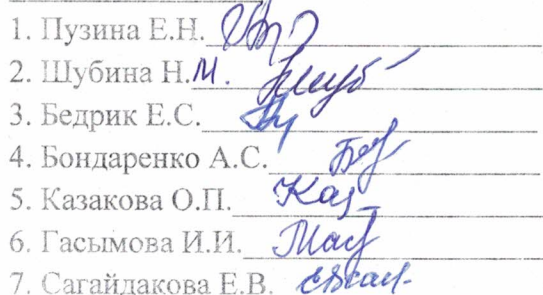 1. Пузина Е.Н.
2. Шубина Н.М.
3. Бедрик Е.С.
4. Бондаренко А.С.
5. Казакова О.П.
6. Гасымова И.И.
7. Сагайдакова Е.В.